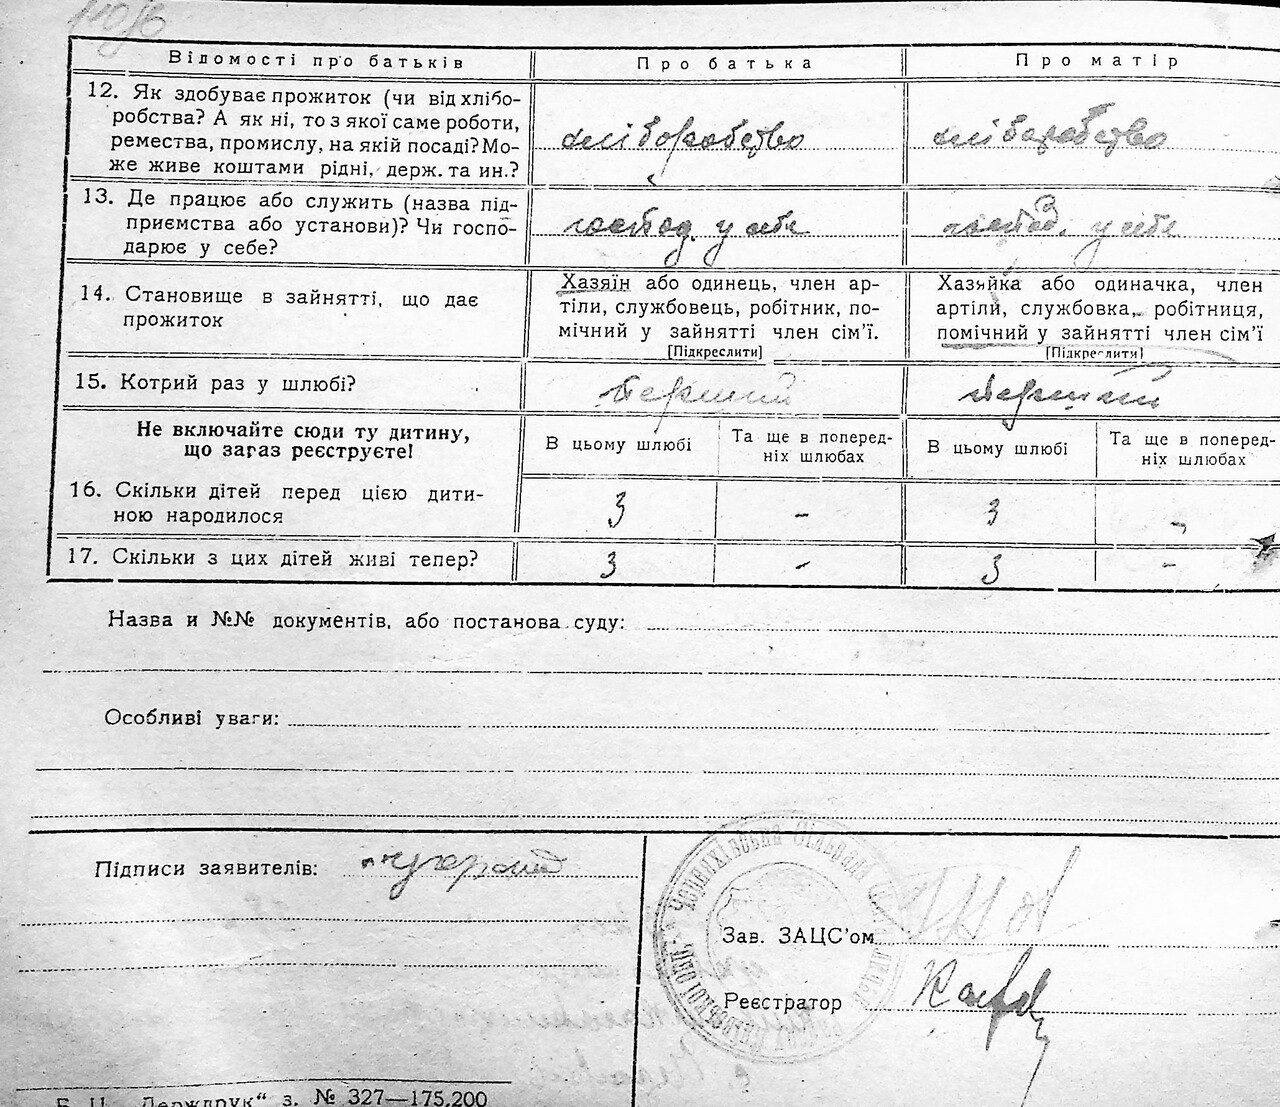 110/6
Відомості про батьків
Про батька
Про матір
12. Як здобуває прожиток (чи від хлібо-
робства? А як ні, то з якої саме роботи,
ремества, промислу, на якій посаді? Мо-
же живе коштами рідні, держ. та ин.?
хліборобство
хліборобство
13. Де працює або служить (назва під-
приємства або установи)? Чи госпо-
дарює у себе?
господ. у себе
господ. у себе
14. Становище в зайнятті, що дає
прожиток
Хазяїн або одинець, член ар-
тіли, службовець, робітник, по-
мічний у зайнятті член сім'ї.
[Підкреслити]
Хазяйка або одиначка, член
артіли, службовка, робітниця,
помічний у зайнятті член сім'ї
[Підкреслити]
15. Котрий раз у шлюбі?
перший
перший
Не включайте сюди ту дитину,
що загаз реєструєте!
В цьому шлюбі
Та ще в поперед-
ніх шлюбах
В цьому шлюбі
Та ще в поперед-
ніх шлюбах
16. Скільки дітей перед цією дити-
ною народилося
3
-
3
-
17. Скільки з цих дітей живі тепер?
3
-
3
-
Назва и №№ документів, або постанова суду:
Особливі уваги:
Підписи заявителів:
Зав. ЗАЦС'ом
Реєстратор
Б. Ц. „Держдрук“ з. № 327—175.200